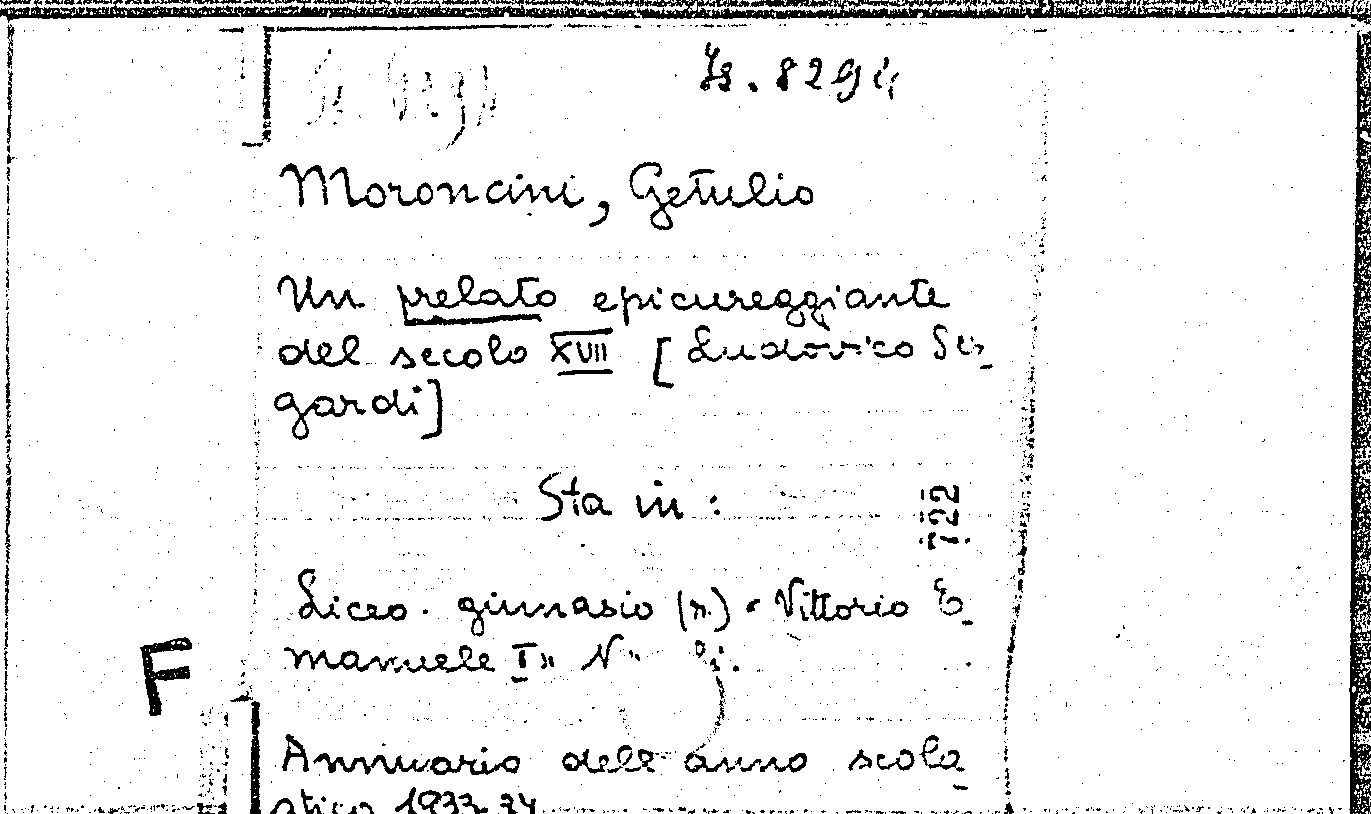 Is. 8294
Moroncini, Getulio
Un prelato epicureggiante
del secolo XVII [Ludovico Ser-
gardi]
Sta in :
722
Liceo. ginnasio (n.) "Vittorio E-
manuele I"
F
Annuario dell' anno scola-
stico 1933-34